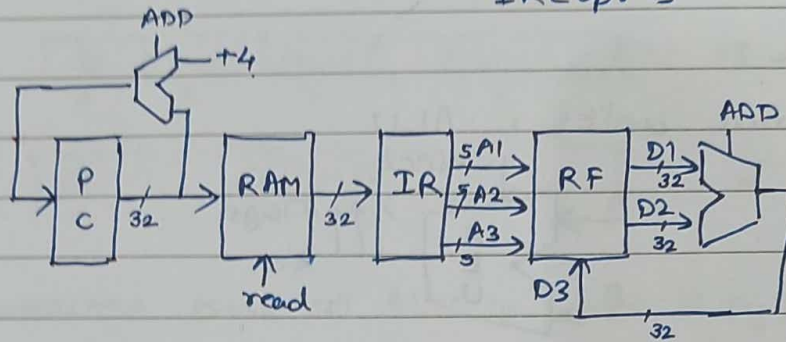 ADD
+4
ADD
P
C
32
RAM
read
32
IR
5 A1
5 A2
A3
5
RF
D1
32
D2
32
D3
32